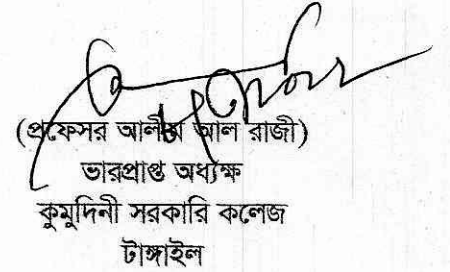 (প্রফেসর আলীম আল রাজী)
ভারপ্রাপ্ত অধ্যক্ষ
কুমুদিনী সরকারি কলেজ
টাঙ্গাইল